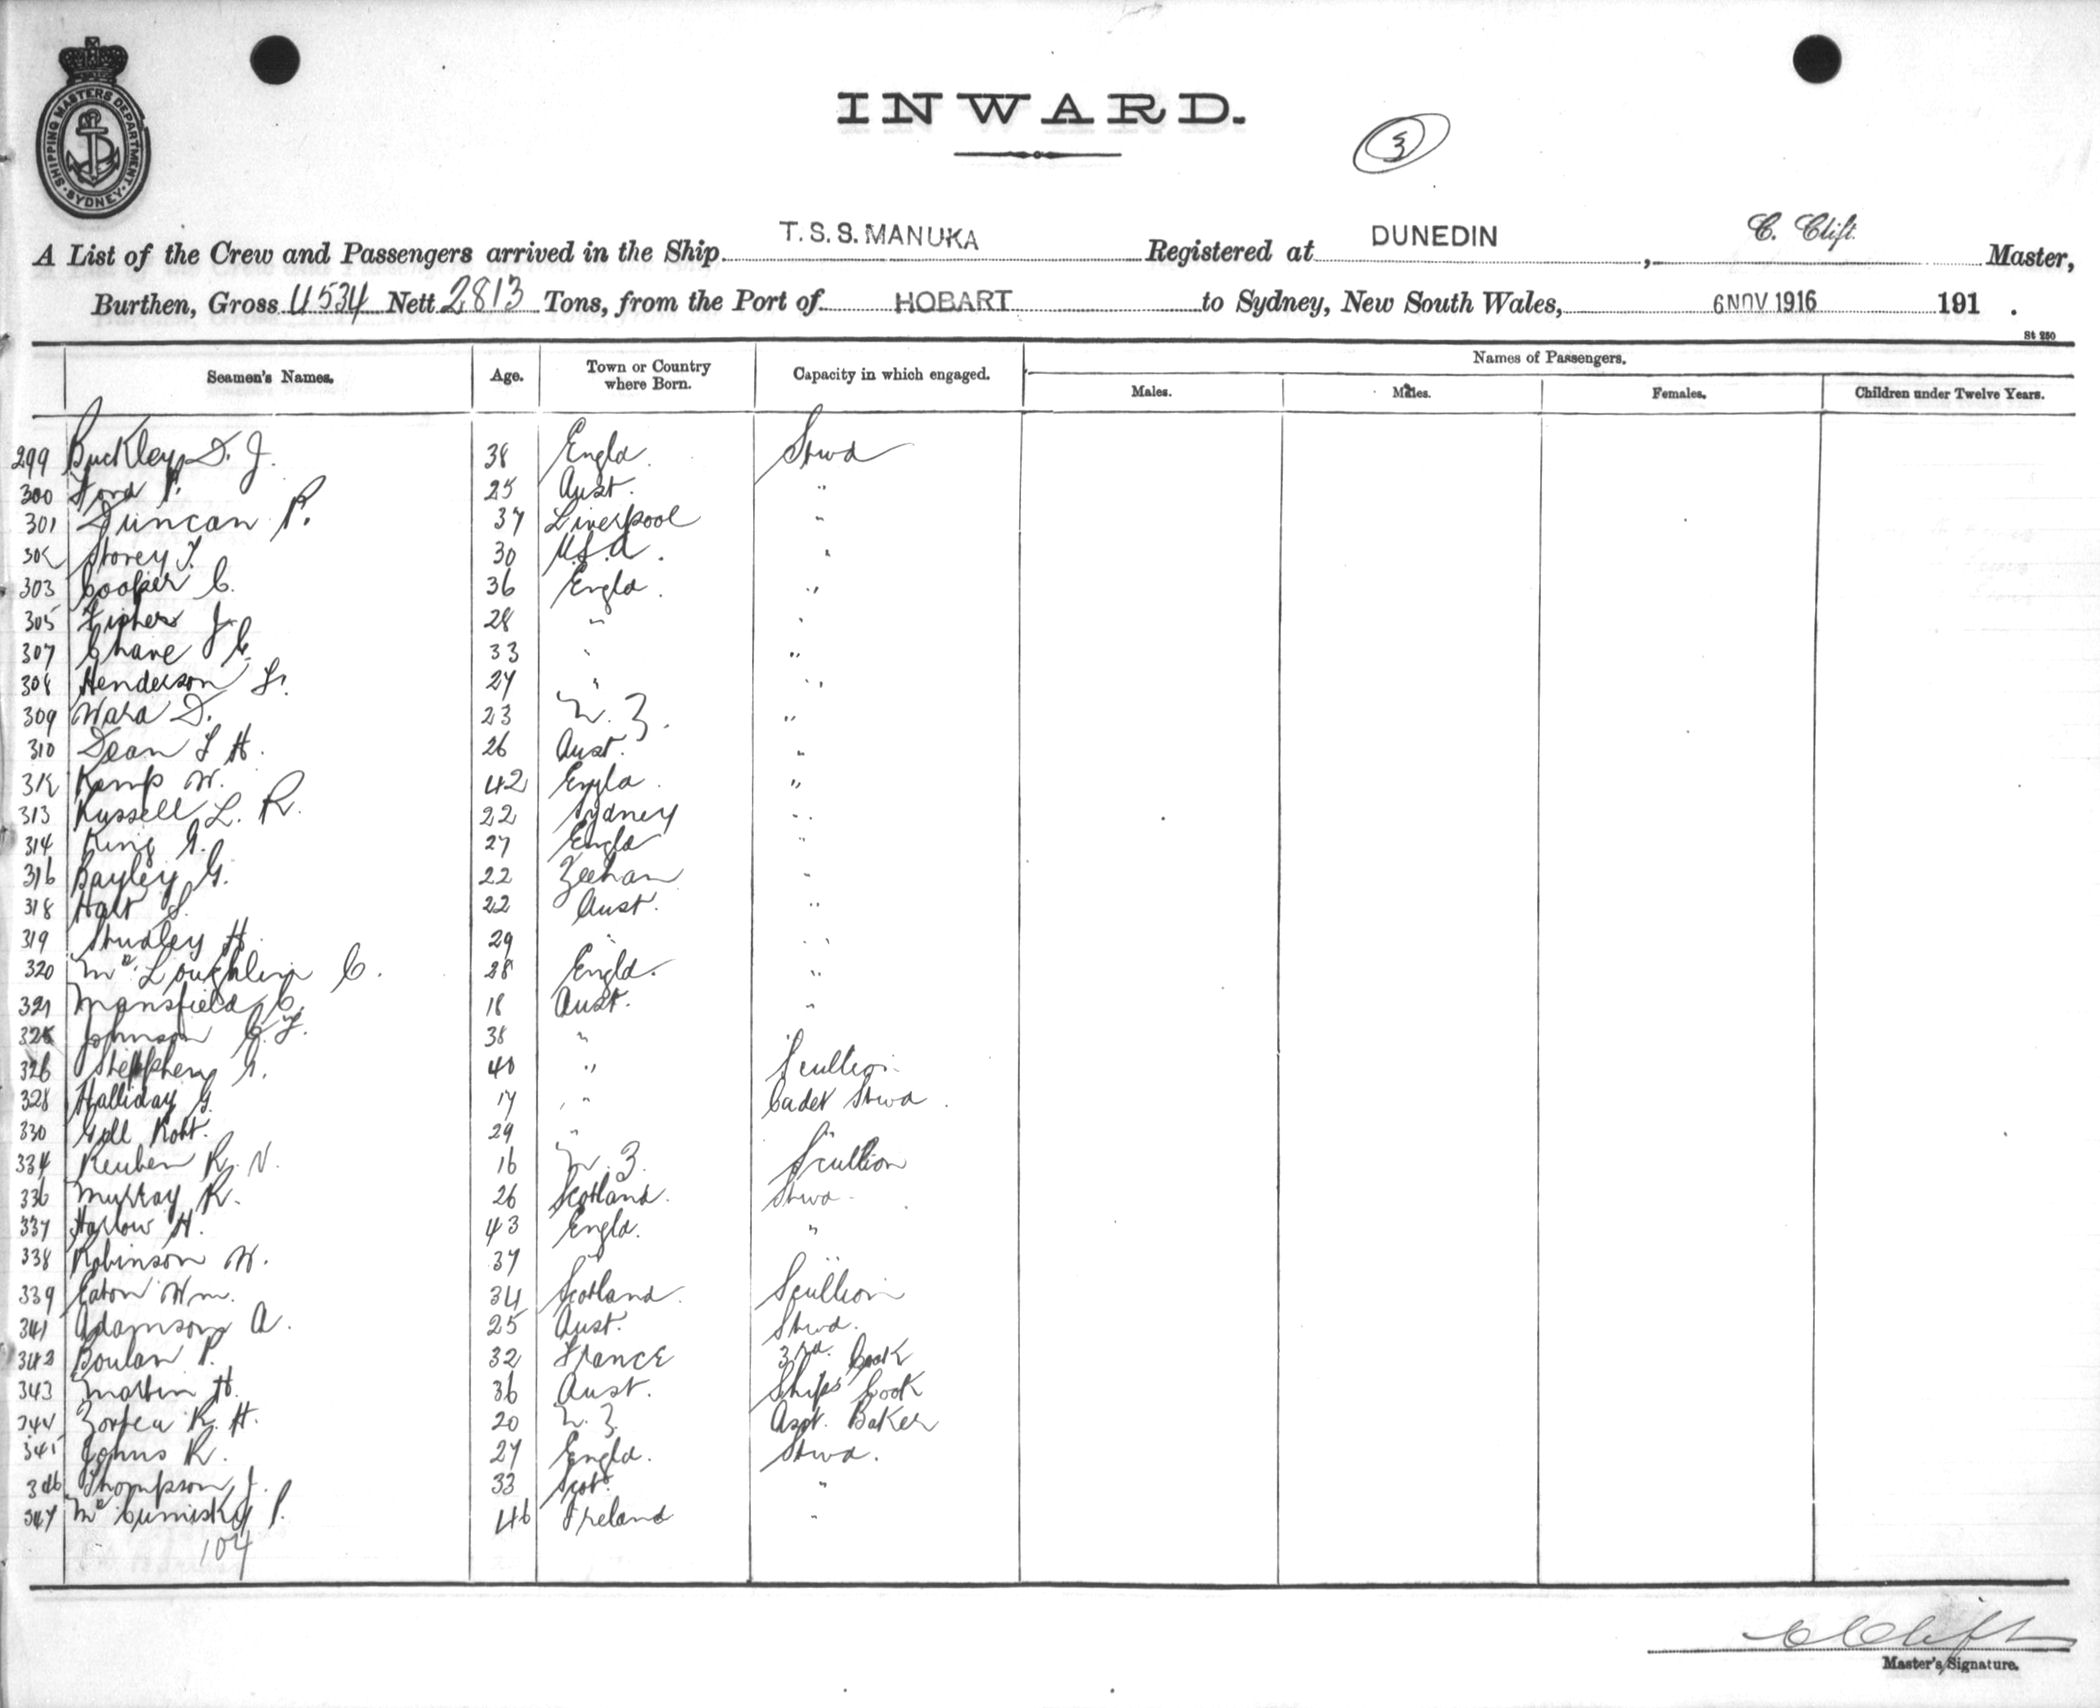 SHIPPING MASTERS DEPARTMENT · SYDNEY ·
INWARD.
3
A List of the Crew and Passengers arrived in the Ship T.S.S. MANUKA Registered at DUNEDIN, C. Clift. Master,
Burthen, Gross 4534 Nett 2813 Tons, from the Port of HOBART to Sydney, New South Wales, 6 NOV 1916 191 .
St 250
Seamen's Names. Age. Town or Country where Born. Capacity in which engaged. Names of Passengers.
Males. Males. Females. Children under Twelve Years.
299 Buckley D. J. 38 Engld. Stwd
300 Ford P. 25 Aust. "
301 Duncan P. 37 Liverpool "
302 Storey T. 30 U.S.A. "
303 Cooper C. 36 Engld. "
305 Fisher J. 28 " "
307 Chave C. 33 " "
308 Henderson 27 " "
309 Ward D. 23 N.Z. "
310 Dean F H. 26 Aust. "
312 Kemp W. 42 Engld. "
313 Russell L. R. 22 Sydney "
314 King G. 27 Engld "
316 Bayley G. 22 Zeehan "
318 Hart S. 22 Aust. "
319 Studley H. 29 " "
320 Mc.Loughlin C. 28 Engld. "
321 Mansfield C. 18 Aust. "
325 Johnson C. F. 38 " "
326 Stephens G. 40 " Scullion
328 Halliday G. 17 " Cadet Stwd.
330 Gill Robt. 29 " "
334 Reuben R. N. 16 N.Z. Scullion
336 Murray R. 26 Scotland. Stwd.
337 Harlow H. 43 Engld. "
338 Robinson W. 37 " "
339 Eaton Wm. 34 Scotland. Scullion
341 Adamson A. 25 Aust. Stwd.
342 Boulan P. 32 France 3rd. Cook
343 Martin H. 36 Aust. Ships Cook
344 R. H. 20 N.Z. Asst. Baker
345 Johns R. 27 Engld. Stwd.
346 Thompson J. 33 Scot. "
347 Mc Cumisky P. 46 Ireland "
104
C Clift
Master's Signature.